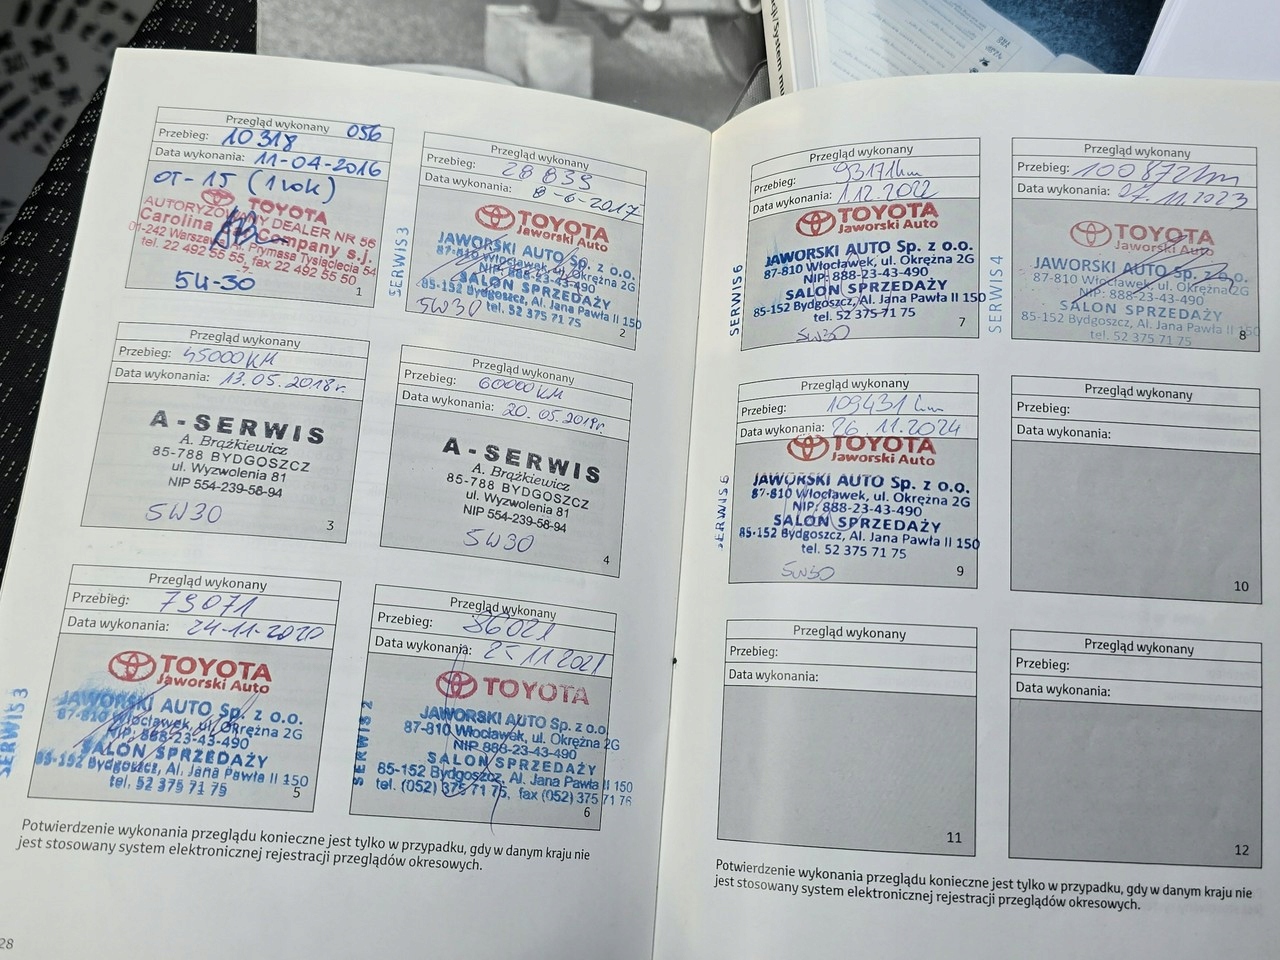 ącji/System mu
Przegląd wykonany 056
Przebieg: 10318
Data wykonania: 11-04-2016
OT-15 (1 rok)
TOYOTA
AUTORYZOWANY DEALER NR 56
Carolina Company s.j.
01-242 Warszawa, al. Prymasa Tysiąclecia 54
tel. 22 492 55 55, fax 22 492 55 50
-7-
5W-30
1
Przegląd wykonany
Przebieg: 28839
Data wykonania: 8-6-2017
SERWIS 3
TOYOTA
Jaworski Auto
JAWORSKI AUTO Sp. z o.o.
87-810 Włocławek, ul. Okrężna 2G
NIP: 888-23-43-490
SALON SPRZEDAŻY
85-152 Bydgoszcz, Al. Jana Pawła II 150
tel. 52 375 71 75
5W30
2
Przegląd wykonany
Przebieg: 45000KM
Data wykonania: 13.05.2018r.
A-SERWIS
A. Brążkiewicz
85-788 BYDGOSZCZ
ul. Wyzwolenia 81
NIP 554-239-58-94
5W30
3
Przegląd wykonany
Przebieg: 60000KM
Data wykonania: 20.05.2019r.
A-SERWIS
A. Brążkiewicz
85-788 BYDGOSZCZ
ul. Wyzwolenia 81
NIP 554-239-58-94
5W30
4
Przegląd wykonany
Przebieg: 79071
Data wykonania: 24-11-2020
SERWIS 3
TOYOTA
Jaworski Auto
JAWORSKI AUTO Sp. z o.o.
87-810 Włocławek, ul. Okrężna 2G
NIP: 888-23-43-490
SALON SPRZEDAŻY
85-152 Bydgoszcz, Al. Jana Pawła II 150
tel. 52 375 71 75
5
Przegląd wykonany
Przebieg: 86021
Data wykonania: 25 11 2021
SERWIS 2
TOYOTA
JAWORSKI AUTO Sp. z o.o.
87-810 Włocławek, ul. Okrężna 2G
NIP 888-23-43-490
SALON SPRZEDAŻY
85-152 Bydgoszcz, Al. Jana Pawła II 150
tel. (052) 375 71 75, fax (052) 375 71 76
6
Potwierdzenie wykonania przeglądu konieczne jest tylko w przypadku, gdy w danym kraju nie
jest stosowany system elektronicznej rejestracji przeglądów okresowych.
28
Przegląd wykonany
Przebieg: 93171km
Data wykonania: 1.12.2022
SERWIS 6
TOYOTA
Jaworski Auto
JAWORSKI AUTO Sp. z o.o.
87-810 Włocławek, ul. Okrężna 2G
NIP: 888-23-43-490
SALON SPRZEDAŻY
85-152 Bydgoszcz, Al. Jana Pawła II 150
tel. 52 375 71 75
5W30
7
Przegląd wykonany
Przebieg: 100872km
Data wykonania: 27.11.2023
SERWIS 4
TOYOTA
Jaworski Auto
JAWORSKI AUTO Sp. z o.o.
87-810 Włocławek, ul. Okrężna 2G
NIP: 888-23-43-490
SALON SPRZEDAŻY
85-152 Bydgoszcz, Al. Jana Pawła II 150
tel. 52 375 71 75
8
Przegląd wykonany
Przebieg: 109431 km
Data wykonania: 26.11.2024
TOYOTA
Jaworski Auto
JAWORSKI AUTO Sp. z o.o.
87-810 Włocławek, ul. Okrężna 2G
NIP: 888-23-43-490
SALON SPRZEDAŻY
85-152 Bydgoszcz, Al. Jana Pawła II 150
tel. 52 375 71 75
5W30
9
Przegląd wykonany
Przebieg:
Data wykonania:
10
Przegląd wykonany
Przebieg:
Data wykonania:
11
Przegląd wykonany
Przebieg:
Data wykonania:
12
Potwierdzenie wykonania przeglądu konieczne jest tylko w przypadku, gdy w danym kraju nie
jest stosowany system elektronicznej rejestracji przeglądów okresowych.